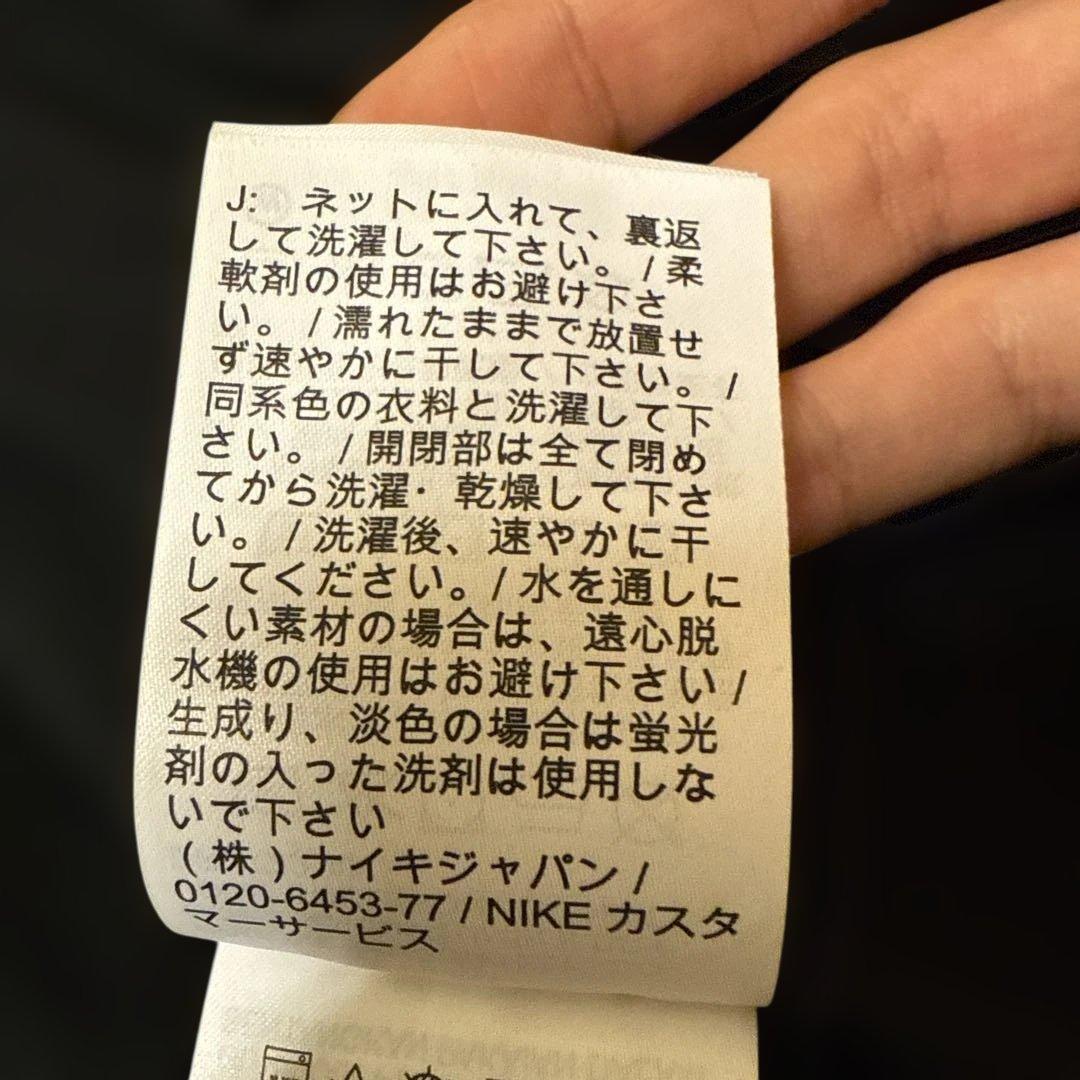 J: ネットに入れて、裏返
して洗濯して下さい。/柔
軟剤の使用はお避け下さ
い。/濡れたままで放置せ
ず速やかに干して下さい。/
同系色の衣料と洗濯して下
さい。/開閉部は全て閉め
てから洗濯・乾燥して下さ
い。/洗濯後、速やかに干
してください。/水を通しに
くい素材の場合は、遠心脱
水機の使用はお避け下さい/
生成り、淡色の場合は蛍光
剤の入った洗剤は使用しな
いで下さい
(株)ナイキジャパン/
0120-6453-77 / NIKE カスタ
マーサービス